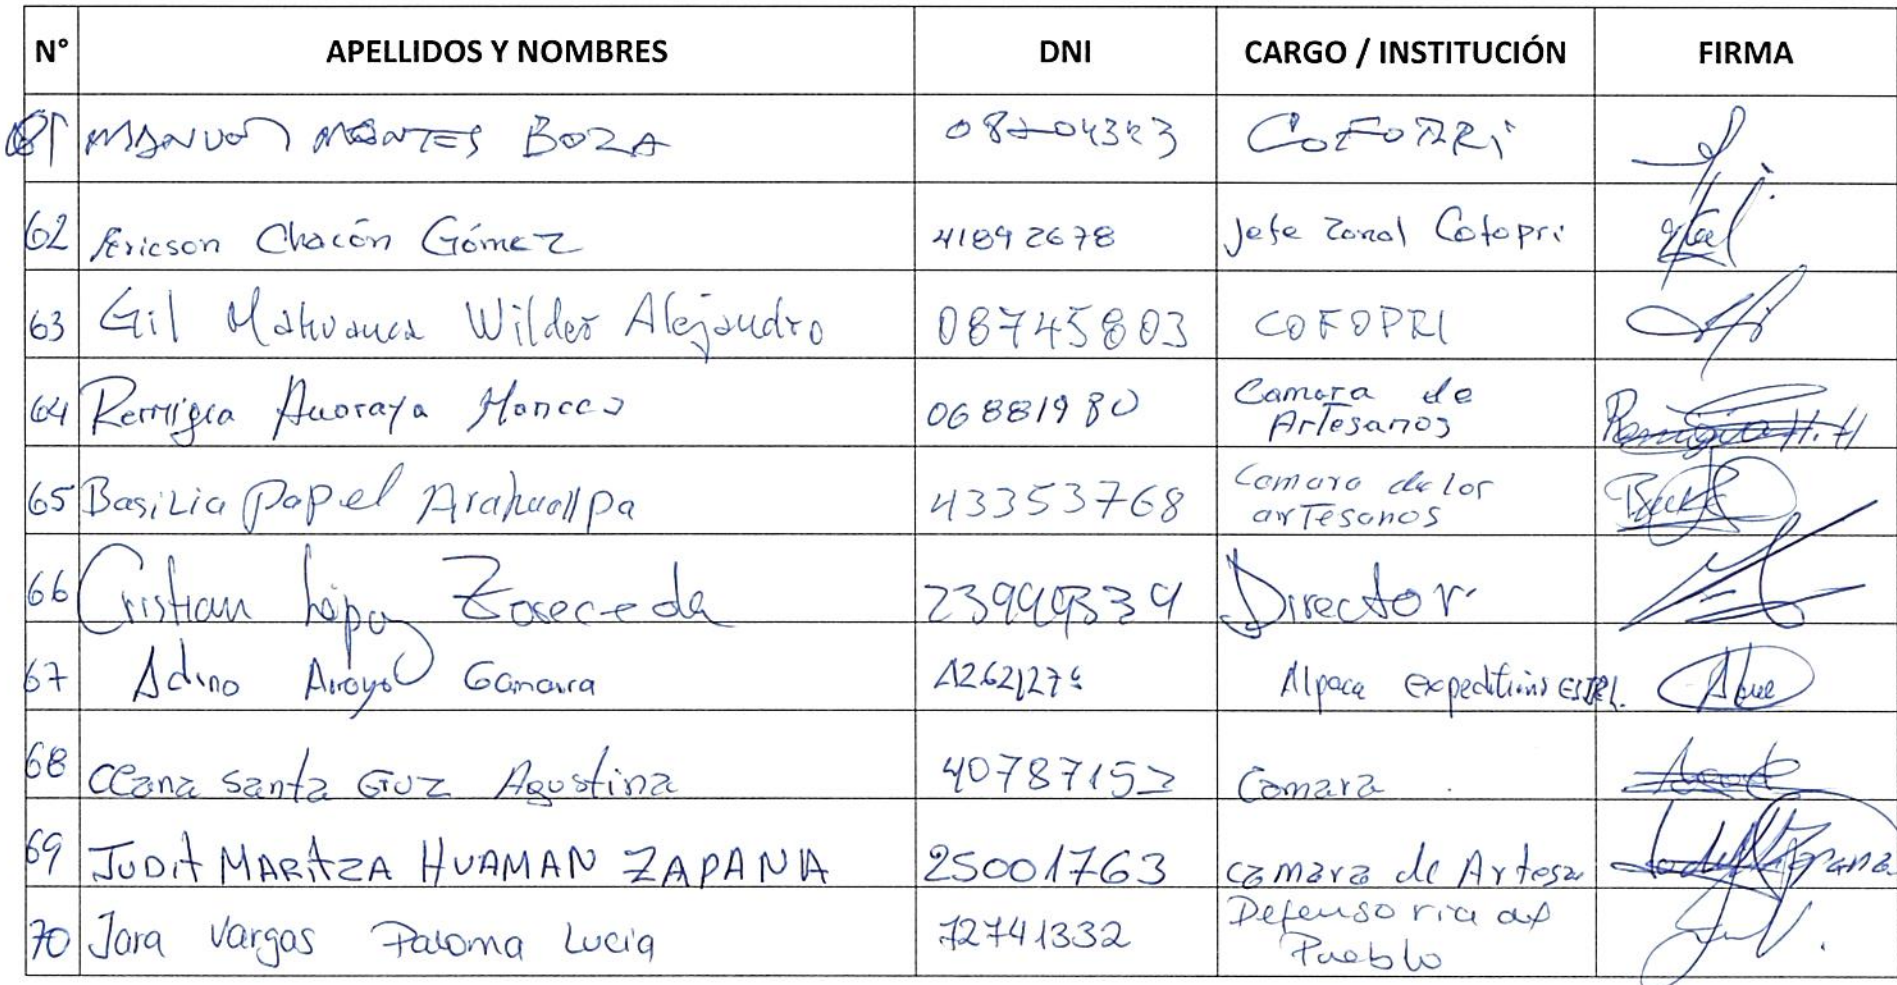 N° APELLIDOS Y NOMBRES DNI CARGO / INSTITUCIÓN FIRMA
61 MANUEL MONTES BOZA COFOPRI
62 Ericson Chacón Gómez 41892678 Jefe Zonal Cofopri
63 Gil Mahuanca Wilder Alejandro 08745803 COFOPRI
64 Remigia 06881980 Camara de
Artesanos
65 Basilia Papel Arahuallpa 43353768 Camara de los
arTesanos
66 Cristian López Director
67 Adino Arroyo Gamarra Alpaca expeditions
68 CCana Santa Cruz Agustina 40787152 Camara
69 JUDIT MARITZA HUAMAN ZAPANA 25001763 camara de Artesa
70 Jara Vargas Paloma Lucia 72741332 Defensoria del
Pueblo